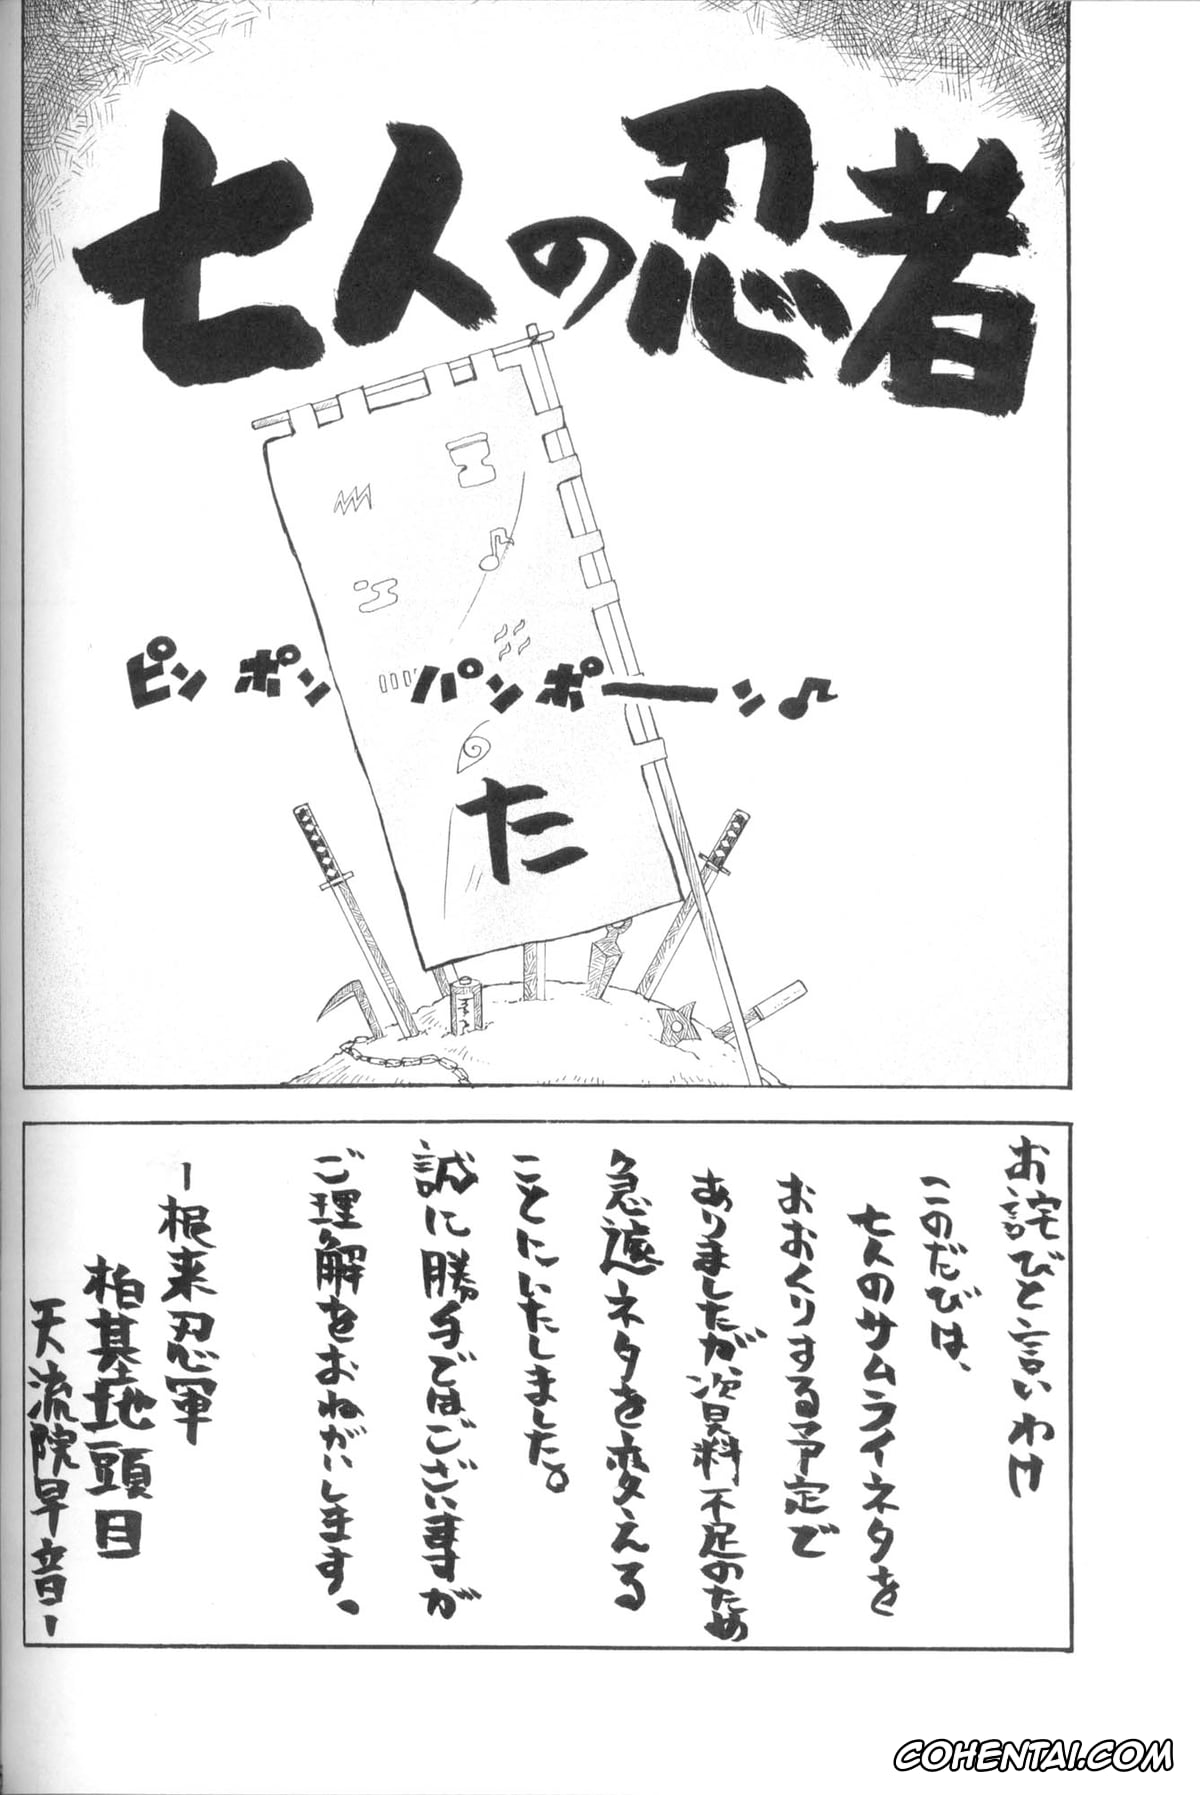 七人の忍者
ピンポンパンポーン♪
た
お詫びと言いわけ
このたびは、
七人のサムライネタを
おおくりする予定で
ありましたが、資料不足のため
急遽ネタを変える
ことにいたしました。
誠に勝手ではございますが
ご理解をおねがいします。
ー根来忍軍
柏基地頭目
天流院早音ー
COHENTAI.COM